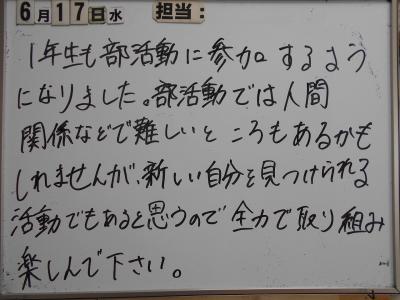 6月17日水 担当:
1年生も部活動に参加するよう
になりました。部活動では人間
関係などで難しいところもあるかも
しれませんが、新しい自分を見つけられる
活動でもあると思うので全力で取り組み
楽しんで下さい。